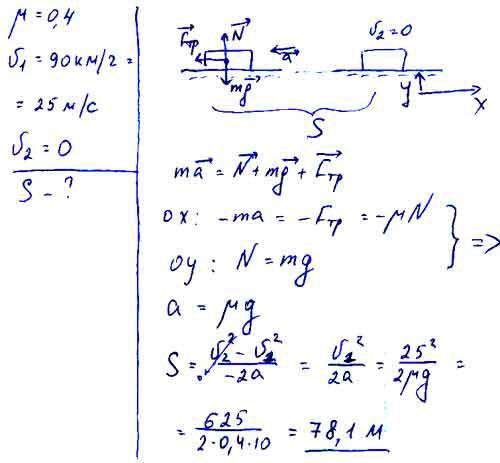 μ = 0,4
υ₁ = 90 км/г =
= 25 м/с
υ₂ = 0
S – ?
F⃗тр N⃗ a⃗ υ₂ = 0
mg⃗ y
S x
ma⃗ = N⃗ + mg⃗ + F⃗тр
ох: –ma = –Fтр = –μN
оу: N = mg } =>
a = μg
S = (υ₂² – υ₁²)/(–2a) = υ₁²/2a = 25²/2μg =
= 625/(2·0,4·10) = 78,1 м